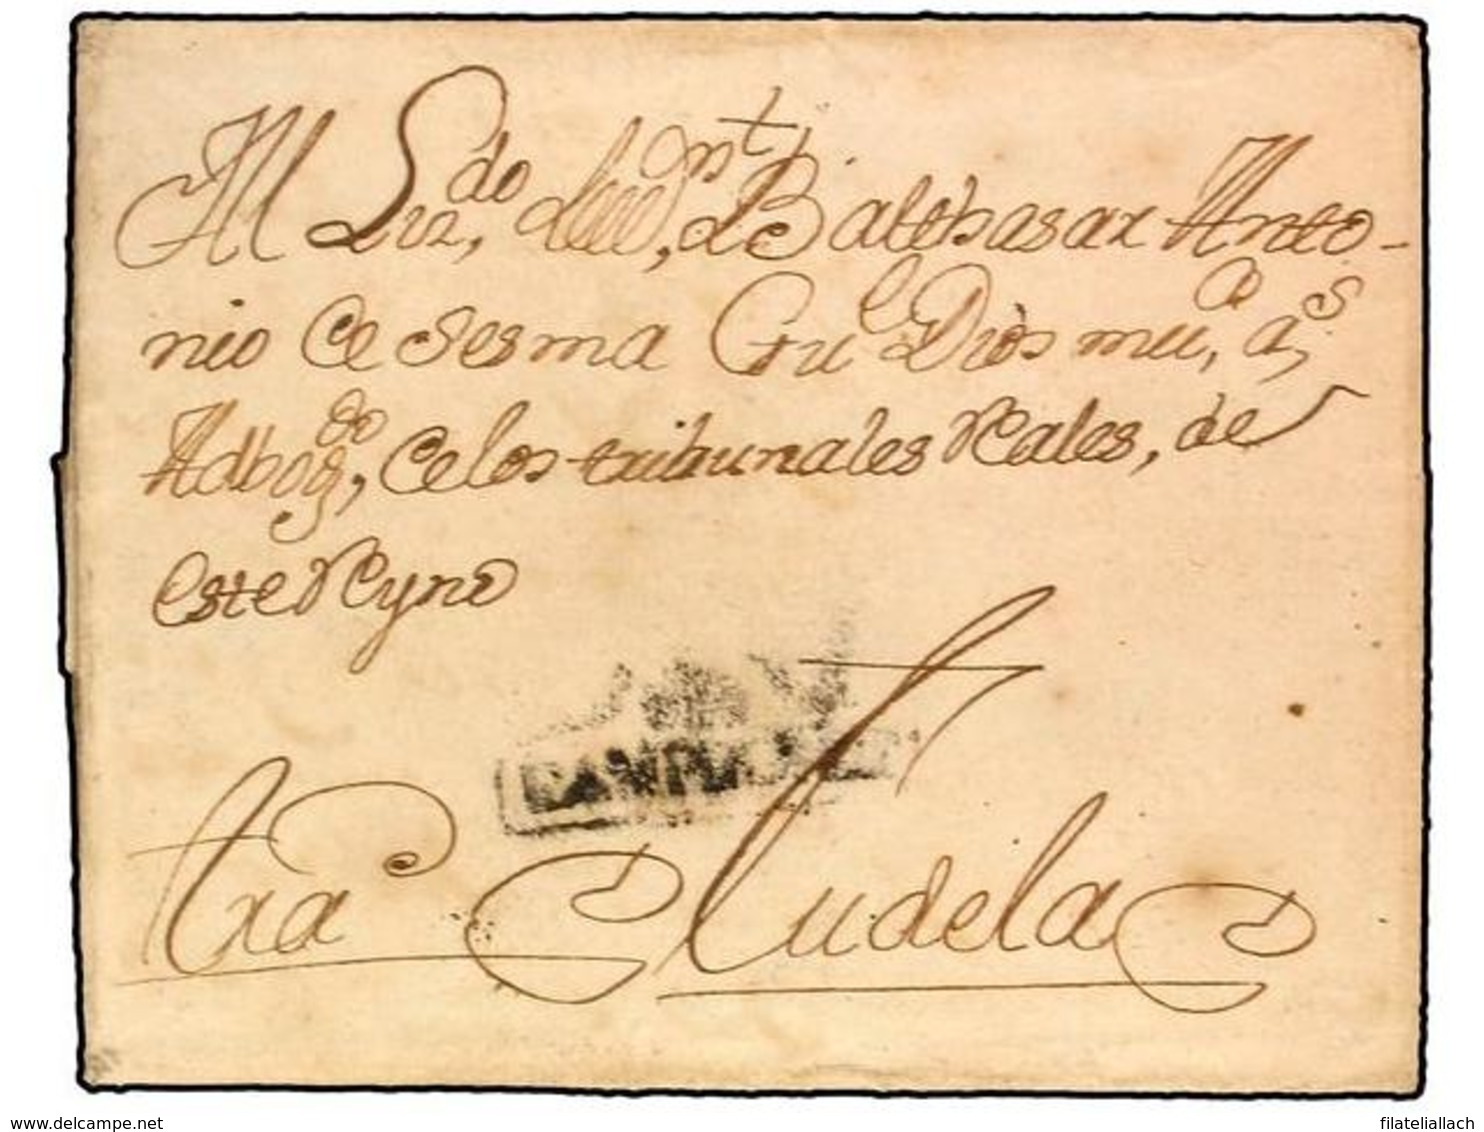 Al Lizdo, Dn Balthasar Anto-
nio de Sesma Gue Dios mu,a as
Adbogdo, de los tribunales Reales, de
este Reyno
NAV
PAMPLONA
Tudela
www.delcampe.net
filateliallach